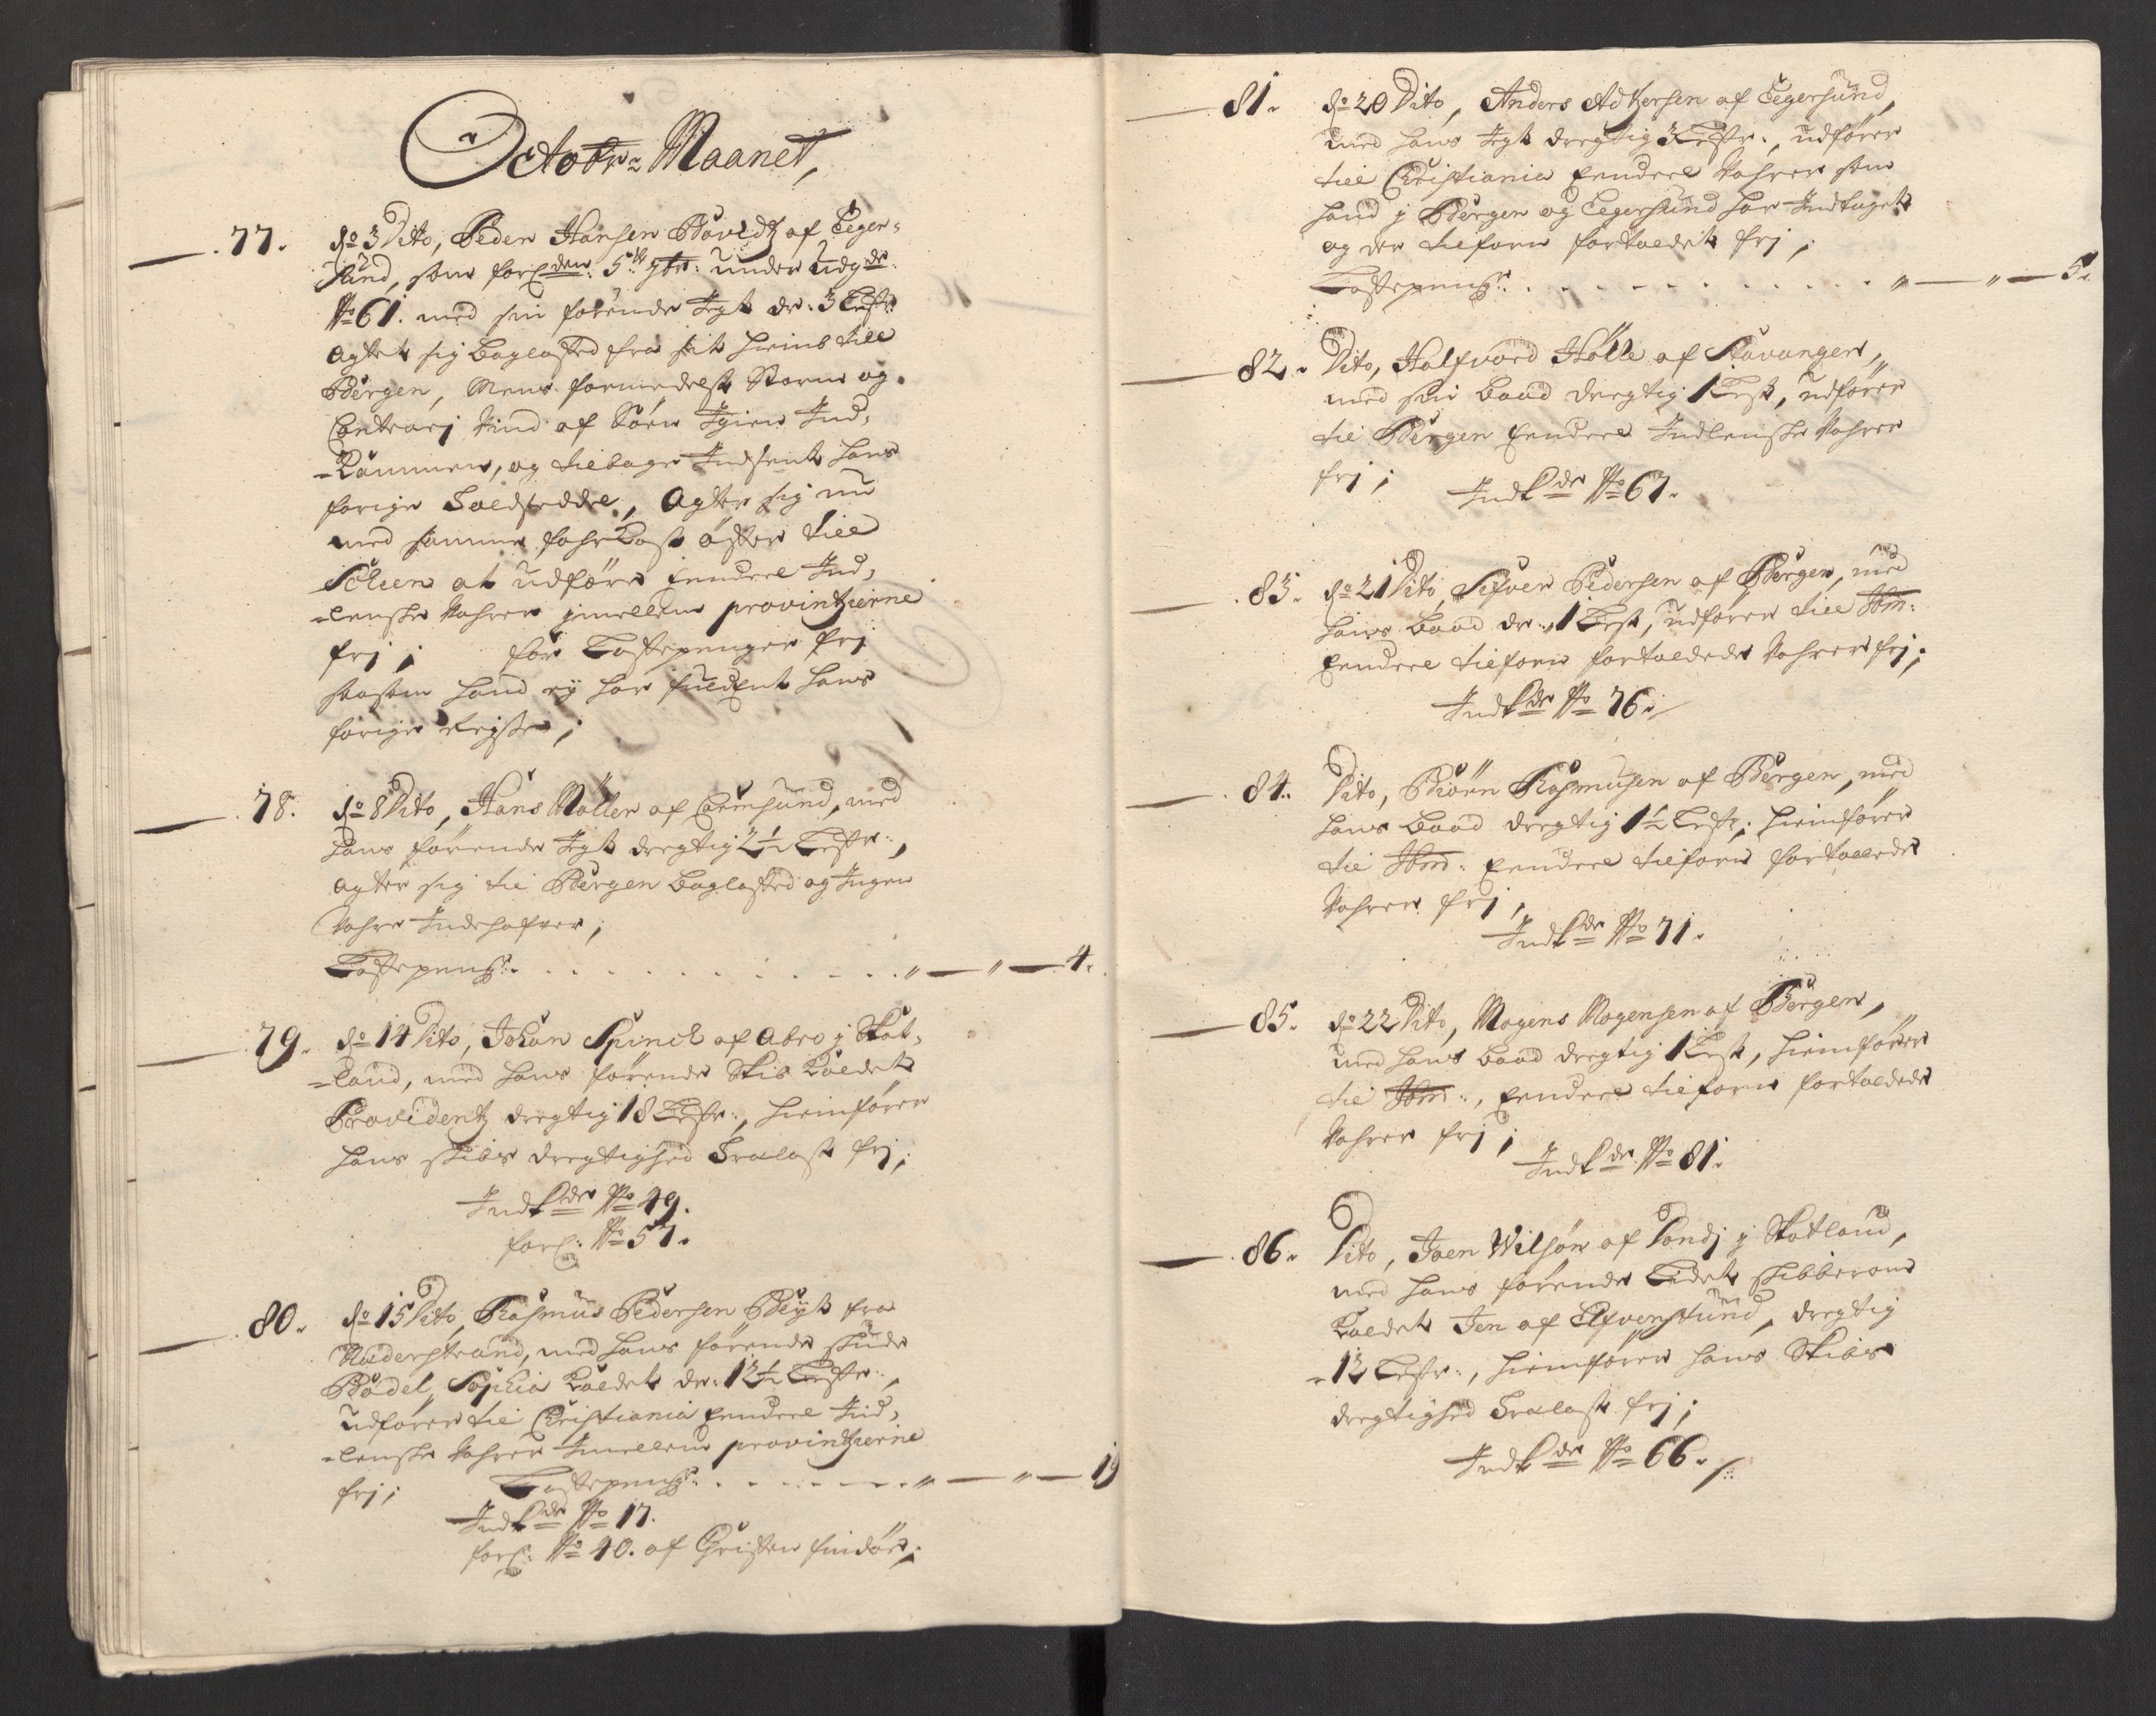 Octobr: Maanet,
77. d: 3 Dito, Peder Hansen Povidtz af Eeger-
sund, som forl: den 5te 7br: under Udg de
No 61. med sin førende Jegt dr: 3 Lestr
agtet sig baglasted fra sit hiemb till
Bergen, Mens formedelst Storm og
Contrarj Vind af Søen Igien Ind-
-kommen, og tilbage Indsent hans
forige Toldseddel, Agter sig nu
med samme fahrkost øster till
Scheen at udføre endeel Ind-
-lenske Vahrer imellem provintzierne
frj; for Lastepenger frj
saasom hand ey har fuldent hans
forige Rejse;
78. d: 8 Dito, Hans Møller af Carmsund, med
hans førende Jegt dregtig 2½ Lestr:,
agter sig til Bergen baglasted og Ingen
Vahre Indehafver;
Lastepeng: . . . . „ — „ — 4.
79. d: 14 Dito, Johan Spinck af Abro j Skot-
-land, med hans førende Skib kaldet
Providentz dregtig 18 Lestr:, hiemfører
hans skibs dregtighed Trælast frj;
Indk de No 49.
forl: No 57.
80. d: 15 Dito, Rasmus Pedersen Beyk fra
Naderstrand, med hans førende skude
Bodel Sophia kaldet dr: 12½ Lestr:,
udfører til Christiania endeel Ind-
-lenske Vahrer Imellem provintzierne
frj; Lastepeng: . . . . „ — „ — 19
Indk de No 17.
forl: No 40. af Christen findør;
81. d: 20 Dito, Anders Adzersen af Eegersund,
med hans Jegt dregtig 3 Lestr:, udfører
till Christiania endeel Vahrer som
hand j Bergen og Eegersund har Indtaget
og der tilforn fortoldet frj;
Lastepeng: . . . . „ — „ — 5.
82. Dito, Halfvord Hølle af Stavanger,
med sin baad dregtig 1 Lest, udfører
til Bergen endeel Indlenske Vahrer
frj; Indk de No 67.
83. d: 21 Dito, Sifver Pedersen af Bergen, med
hans baad dr: 1 Lest, udfører till Ibm:
endeel tilforn fortoldede Vahrer frj;
Indk de No 76.
84. Dito, Biørn Rasmusen af Bergen, med
hans baad dregtig 1½ Lestr; hiemfører
til Ibm: endeel tilforn fortollede
Vahrer frj,
Indk de No 71.
85. d: 22 Dito, Mogens Mogensen af Bergen,
med hans baad dregtig 1 Lest, hiemfører
til Ibm:, endeel tilforn fortoldede
Vahrer frj;
Indk de No 81.
86. Dito, Joen Wilson af Dondj j Skotland,
med hans førende Lidet skibberom
kaldet Jen af Elfvensund, dregtig
-12 Lestr:, hiemfører hans Skibs
dregtighed Trælast frj;
Indk de No 66.